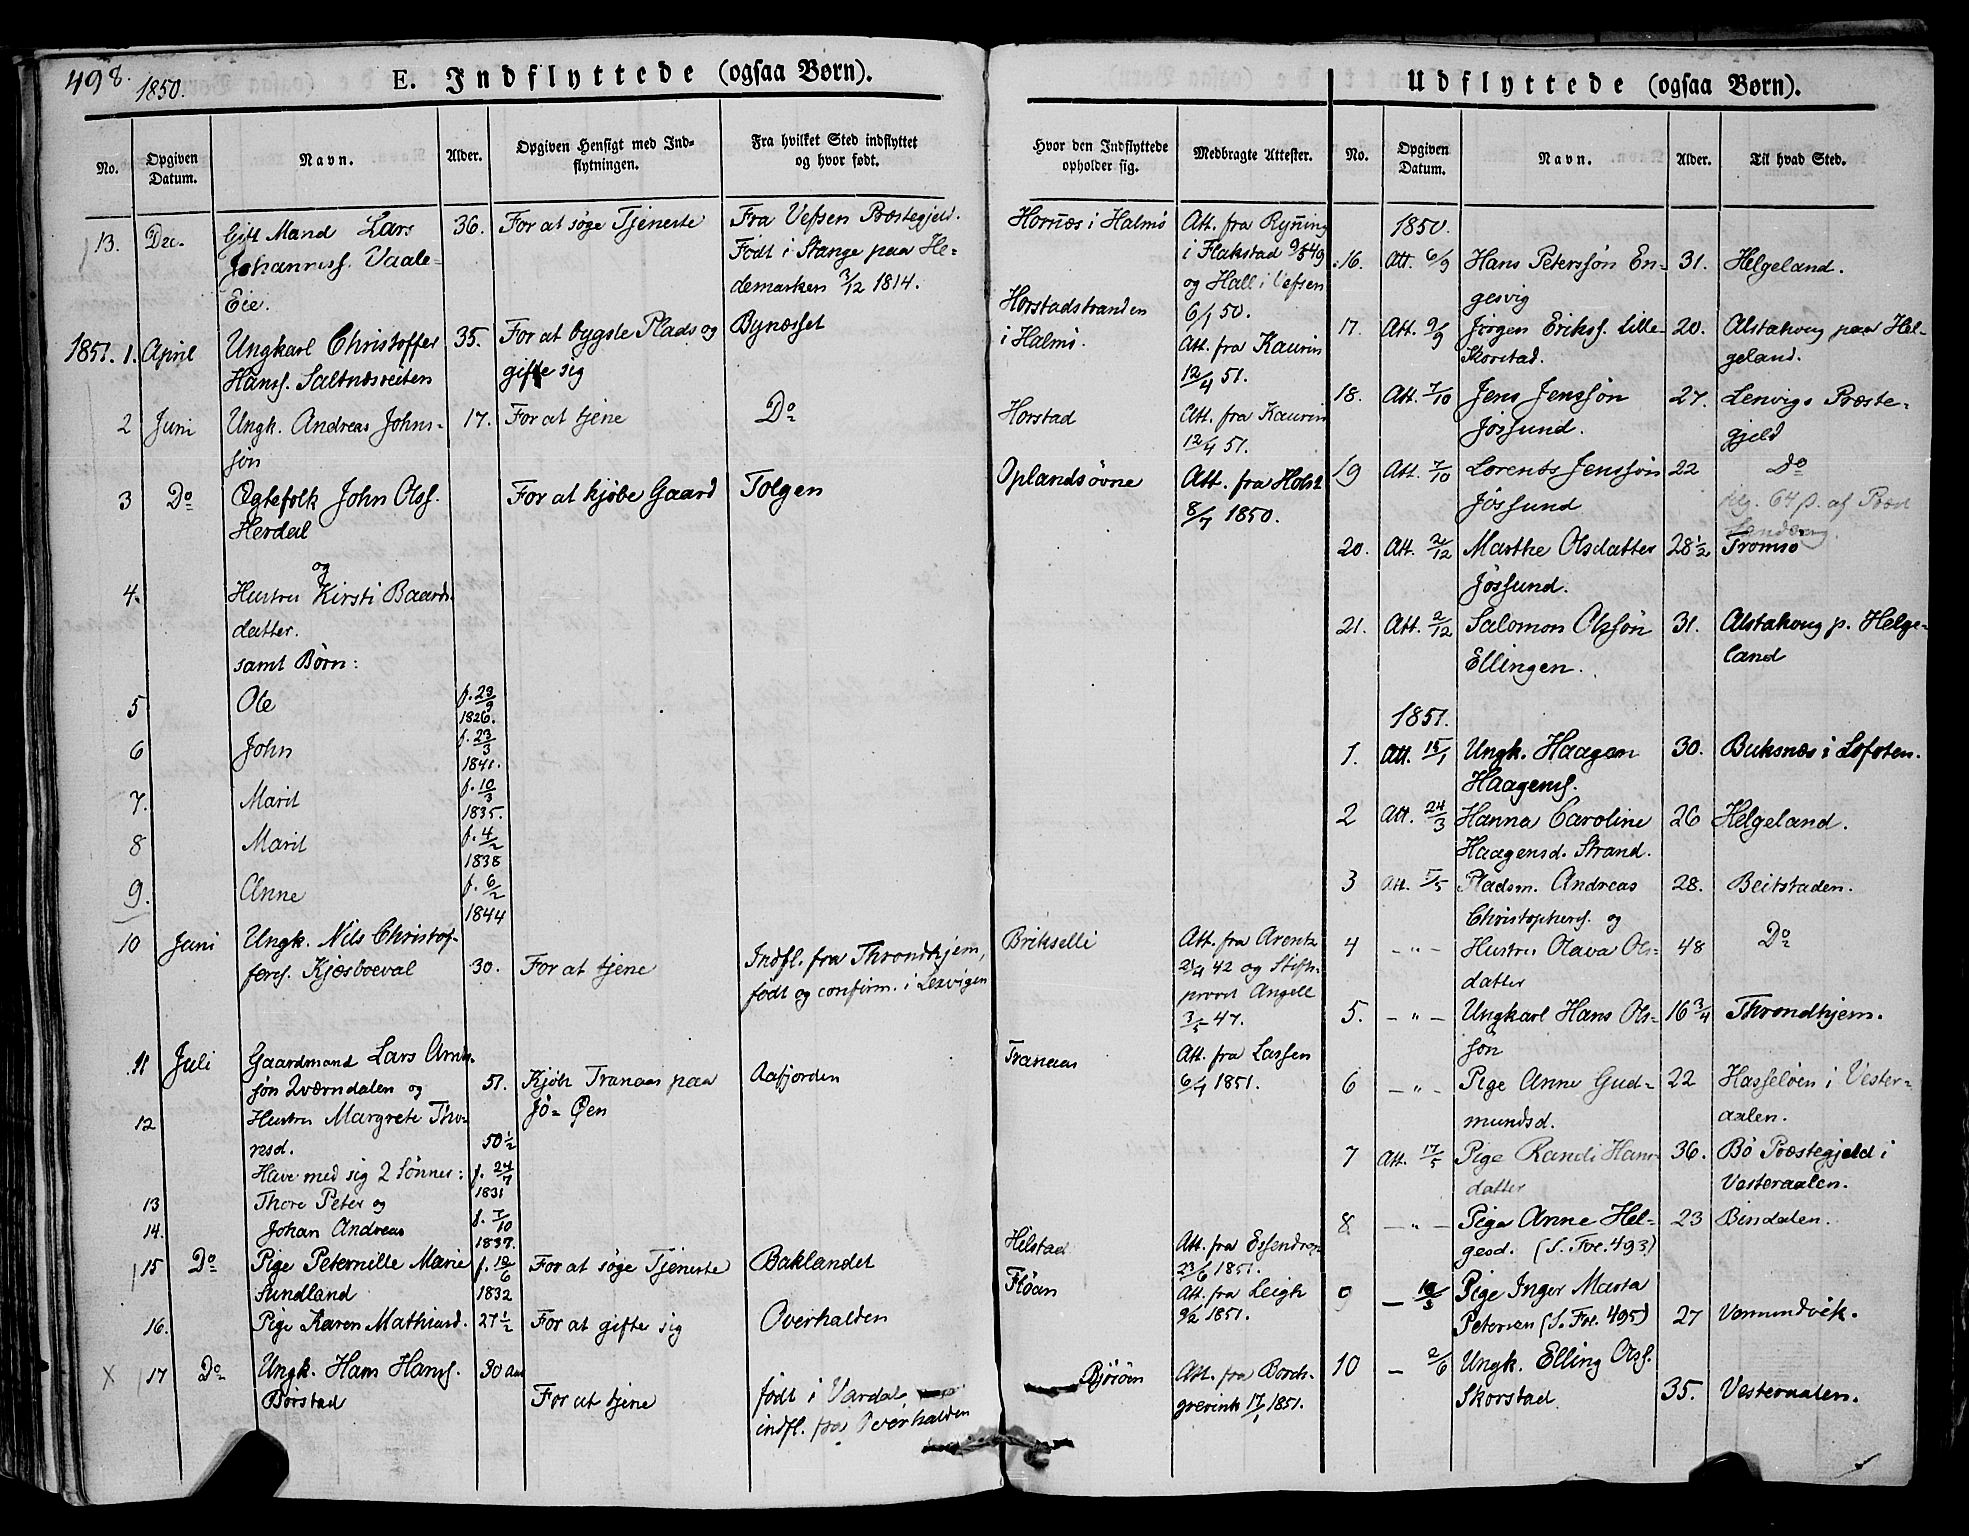 498.
1850.
E. Indflyttede (ogsaa Børn).
No.
Opgiven Datum.
Navn.
Alder.
Opgiven Hensigt med Ind-
flytningen.
Fra hvilket Sted indflyttet
og hvor født.
Hvor den Indflyttede
opholder sig.
Medbragte Attester.
13. Dec. Gift Mand Lars 36. For at søge Tjeneste Fra Vefsen Præstegjeld. Hornæs i Halmø Att. fra Ryning
Johanness. Vaale- Født i Stange paa He- i Flakstad 9/5 49
Eie. demarken 3/12 1814. og Hall i Vefsen
6/1 50.
1851. 1. April Ungkarl Christoffer 35. For at bygsle Plads og Bynæsset Horstadstranden
i Halmø. Att. fra Kaurin
Hanss. Saltnæsveiten gifte sig 12/4 51.
2 Juni Ungk. Andreas Johns- 17. For at tjene Do Horstad Att. fra Kaurin
søn 12/4 51.
3 Do Ægtefolk John Olss. For at kjøbe Gaard Tolgen Oplandsøvne Att. fra Holst
Herdal 8/7 1850.
og
4. Hustru Kirsti Baards-
datter.
samt Børn:
5 Ole f. 29/9
1826.
6 John f. 23/3
1841.
7. Marit f. 10/3
1835.
8 Marit f. 4/2
1838
9. Anne f. 6/2
1844
10 Juni Ungk. Nils Christof- Brekselli Att. fra Arentz
fers. 30. For at tjene Indfl. fra Throndhjem, 42 og Stifts-
født og confirm. i Lexvigen provst Angell
3/5 47.
11 Juli Gaardmand Lars Tranaas Att. fra Lassen
søn Qværndalen og 51. Kjøb. Tranaas paa Aafjorden 6/4 1851.
12 Hustru Margrete Tho- Jø-Øen
resd. 50 1/2
Have med sig 2 Sønner: f. 24/7
1831
13 Thore Peter og
14. Johan Andreas f. 7/10
1837.
15 Do Pige Peternille Marie f. 12/6 For at søge Tjeneste Baklandet Helstad Att. fra Essendrop
Sundland 1832 23/6 1851.
16. Pige Karen Mathiasd. 27 1/2 For at gifte sig Overhalden Fløan Att. fra Leigh
9/2 1851.
X 17 Do Ungk. Hans Hanss. 30 Aar Bjørøen Att. fra Borch-
Børstad For at tjene født i Værdal, grevink 17/1 1851.
indfl. fra Overhalden
Udflyttede (ogsaa Børn).
No.
Opgiven
Datum.
Navn.
Alder.
Til hvad Sted.
1850.
16. Att. 6/9 Hans Peterssøn En- 31. Helgeland.
gesvig
17. Att. 9/9 Jørgen Erikss. Lille 20. Alstahoug paa Hel-
Skorstad. geland.
18. Att. 7/10 Jens Jenssøn 27. Lenvigs Præste-
Jøssund. gjeld
19 Att. 7/10 Lorents Jenssøn 22 Do
Jøssund
20. Att. 2/12 Marthe Olsdatter 28 1/2 Tromsø
Jøssund.
21. Att. 2/12 Salomon Olssøn 31. Alstahoug p. Helge-
Ellingen. land
1851.
1. Att. 15/1 Ungk. Haagen 30. Buksnæs i Lofoten.
Haagens.
2 Att. 24/3 Hanna Caroline 26 Helgeland.
Haagensd. Strand.
3 Att. 5/5 Pladsm. Andreas 28. Beitstaden.
Christophers. og
4 - " - Hustru Olava Ols- 48 Do
datter
5. - " - Ungkarl Hans Ols- 16 3/4 Throndhjem.
søn
6 - " - Pige Anne Gud- 22 Hasseløen i Vester-
mundsd. aalen.
7 Att. 17/5 Pige Randi Hans- 36. Bø Præstegjeld i
datter Vesteraalen.
8 - " - Pige Anne Hel- 23 Bindalen.
gesd. (S. Fol. 493)
9 - 19/5 Pige Inger Marta
Petersen (S. Fol. 495) 27 Vemundvik.
10 - 2/6 Ungk. Elling Olss.
Skorstad 35. Vesteraalen.